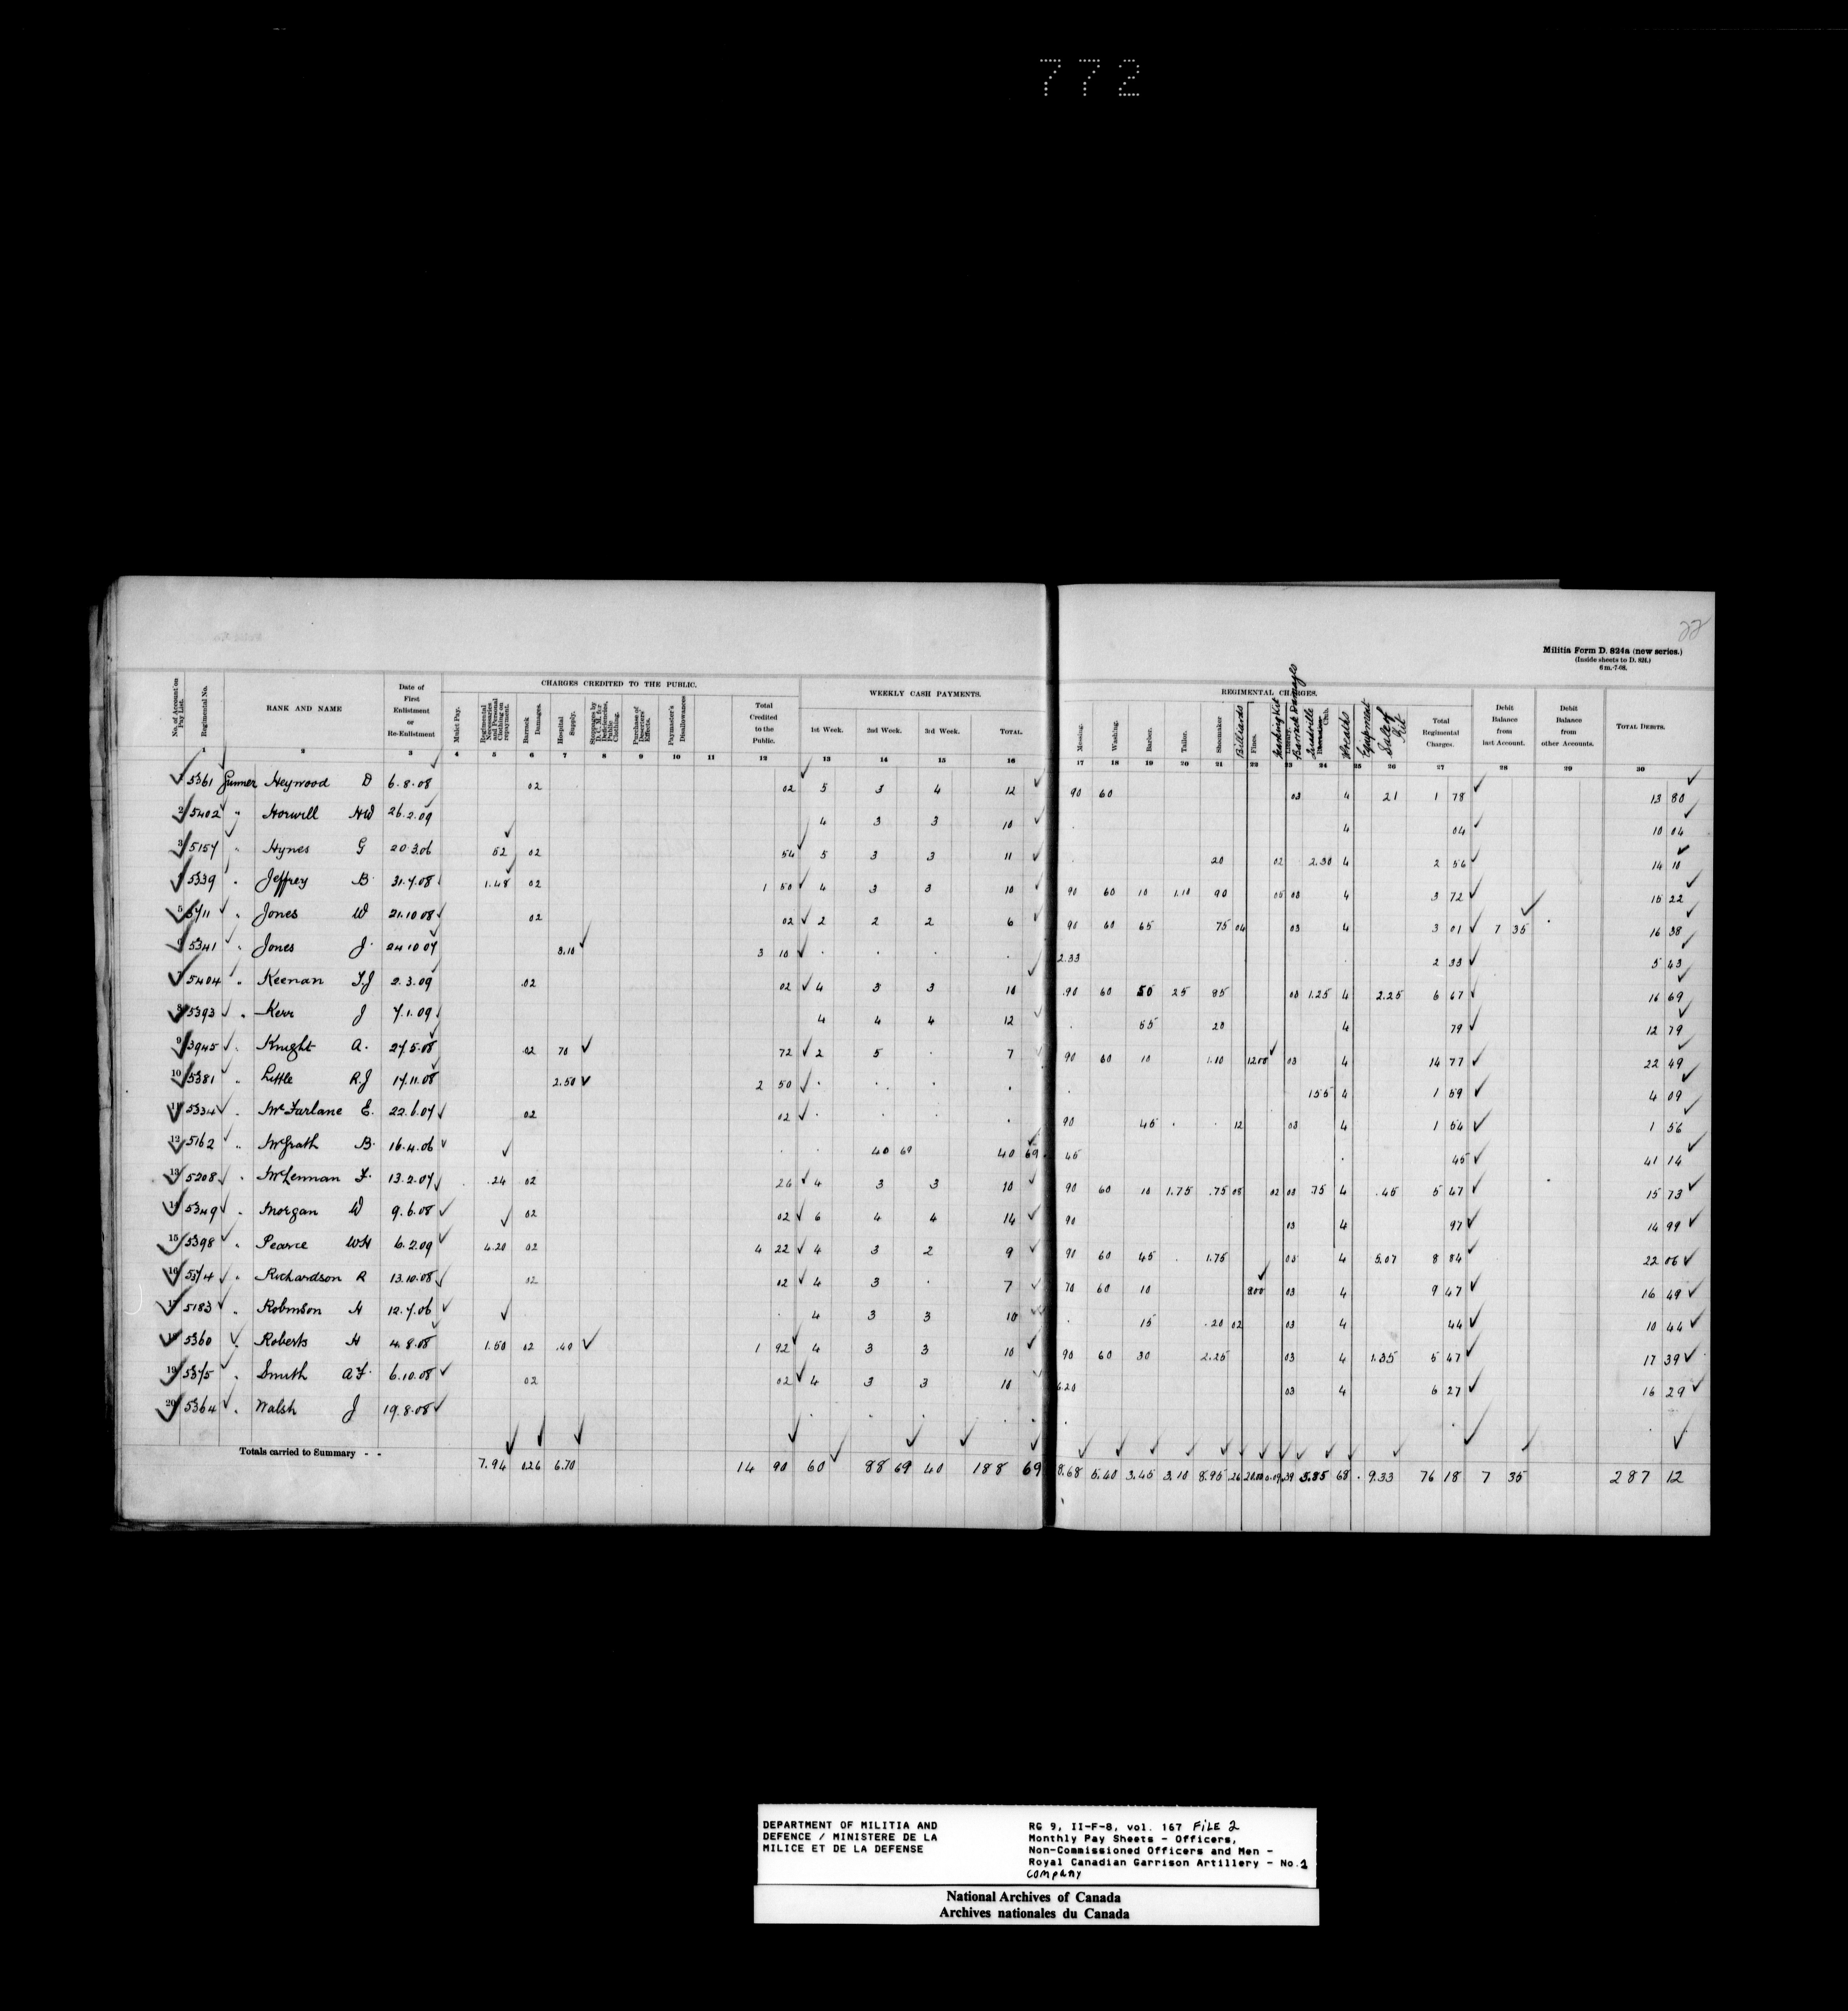 772
22
Militia Form D. 824a (new series.)
(Inside sheets to D. 824.)
6 m.-7-08.
No. of Account on Pay List. Regimental No. RANK AND NAME Date of First Enlistment or Re-Enlistment CHARGES CREDITED TO THE PUBLIC. WEEKLY CASH PAYMENTS. REGIMENTAL CHARGES. Debit Balance from last Account. Debit Balance from other Accounts. TOTAL DEBITS.
Mulct Pay. Regimental Necessaries and Personal Clothing on repayment. Barrack Damages. Hospital Supply. Stoppages by D.C.M. for Deficiencies, Public Clothing. Purchase of Deserters' Effects. Paymaster's Disallowances Total Credited to the Public. 1st Week. 2nd Week. 3rd Week. TOTAL. Messing. Washing. Barber. Tailor. Shoemaker Billiards Fines. Library. Barrack Damages Club. Wreaths Equipment Sale of Kit Total Regimental Charges.
1 2 3 4 5 6 7 8 9 10 11 12 13 14 15 16 17 18 19 20 21 22 23 24 25 26 27 28 29 30
1 5361 Gunner Heywood D 6.8.08 02 02 5 3 4 12 90 60 03 4 21 1 78 13 80
2 5402 " Horwill HW 26.2.09 4 3 3 10 4 04 10 04
3 5157 " Hynes G 20.3.06 52 02 54 5 3 3 11 20 02 2.30 4 2 56 14 10
4 5339 " Jeffrey B. 31.7.08 1.48 02 1 50 4 3 3 10 90 60 10 1.10 90 05 03 4 3 72 15 22
5 5711 " Jones W 21.10.08 02 02 2 2 2 6 90 60 65 75 04 03 4 3 01 7 35 16 38
6 5341 " Jones J. 24.10.07 3.10 3 10 2.33 2 33 5 43
7 5404 " Keenan T.J 2.3.09 .02 02 4 3 3 10 .90 60 50 25 85 03 1.25 4 2.25 6 67 16 69
8 5393 " Kerr J 7.1.09 4 4 4 12 55 20 4 79 12 79
9 3945 " Knight A. 27.5.08 02 70 72 2 5 7 90 60 10 1.10 12.00 03 4 14 77 22 49
10 5381 " Little R.J 17.11.08 2.50 2 50 155 4 1 59 4 09
11 5334 " McFarlane E. 22.6.07 02 02 90 45 12 03 4 1 54 1 56
12 5162 " McGrath B. 16.4.06 40 69 40 69 45 45 41 14
13 5208 " McLennan F. 13.2.07 .24 02 26 4 3 3 10 90 60 10 1.75 .75 08 02 03 75 4 .45 5 47 15 73
14 5349 " Morgan W 9.6.08 02 02 6 4 4 14 90 03 4 97 14 99
15 5398 " Pearce WH 6.2.09 4.20 02 4 22 4 3 2 9 90 60 45 1.75 03 4 5.07 8 84 22 06
16 5374 " Richardson R 13.10.08 02 02 4 3 7 70 60 10 8.00 03 4 9 47 16 49
17 5183 " Robinson H 12.7.06 4 3 3 10 15 .20 02 03 4 44 10 44
18 5360 " Roberts H 4.8.08 1.50 02 .40 1 92 4 3 3 10 90 60 30 2.25 03 4 1.35 5 47 17 39
19 5375 " Smith A.F. 6.10.08 02 02 4 3 3 10 6.20 03 4 6 27 16 29
20 5364 " Walsh J 19.8.08
Totals carried to Summary - - 7.94 0.26 6.70 14 90 60 88 69 40 188 69 8.68 5.40 3.45 3.10 8.95 .26 20.00 0.09 .39 5.85 68 9.33 76 18 7 35 287 12
DEPARTMENT OF MILITIA AND
DEFENCE / MINISTERE DE LA
MILICE ET DE LA DEFENSE
RG 9, II-F-8, vol. 167 FILE 2
Monthly Pay Sheets - Officers,
Non-Commissioned Officers and Men -
Royal Canadian Garrison Artillery - No.1
COMPANY
National Archives of Canada
Archives nationales du Canada